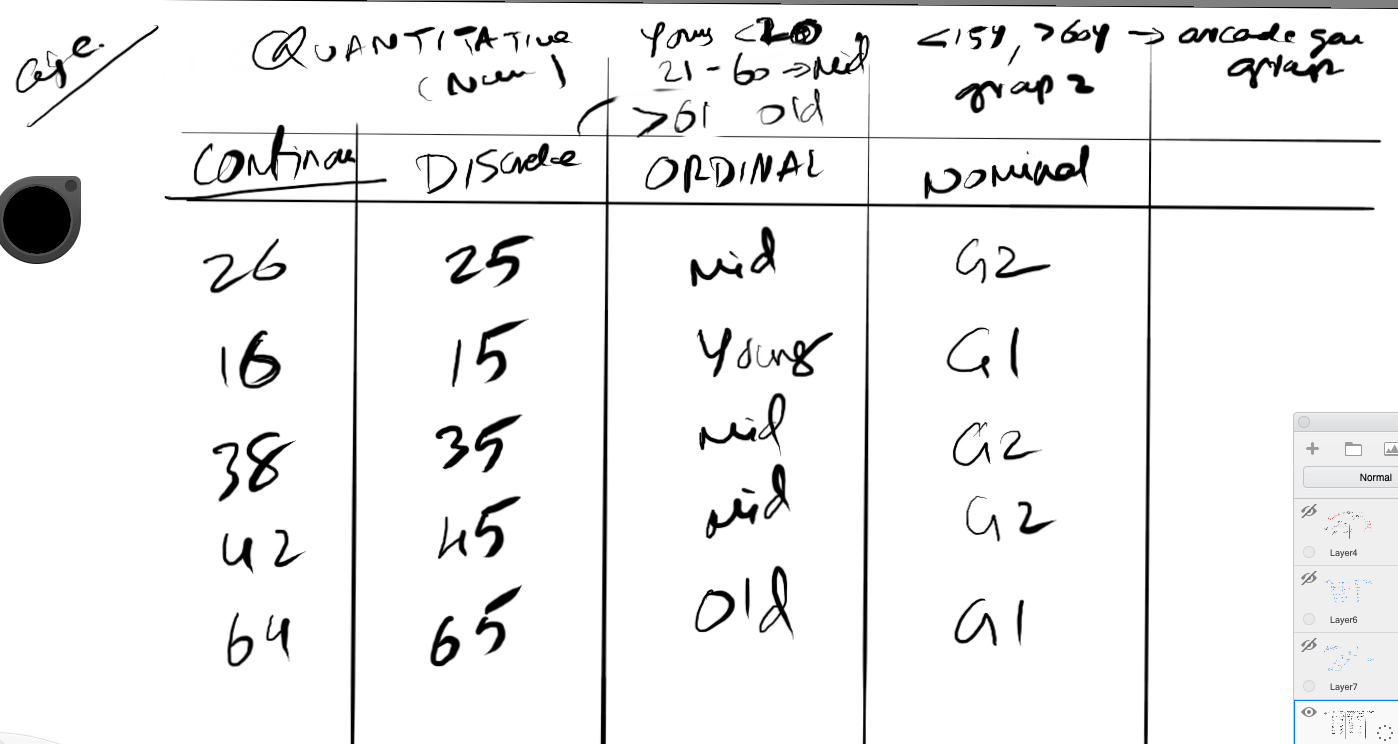 age.
QUANTITATIVE
(Num)
Young <20
21 - 60 → Mid
>61 Old
<15y, >60y → arcade
group 2
group
Continou
DISCrete
ORDINAL
NOMINAL
26 25 Mid G2
16 15 Young G1
38 35 Mid G2
42 45 Mid G2
64 65 Old G1
Normal
Layer4
Layer6
Layer7